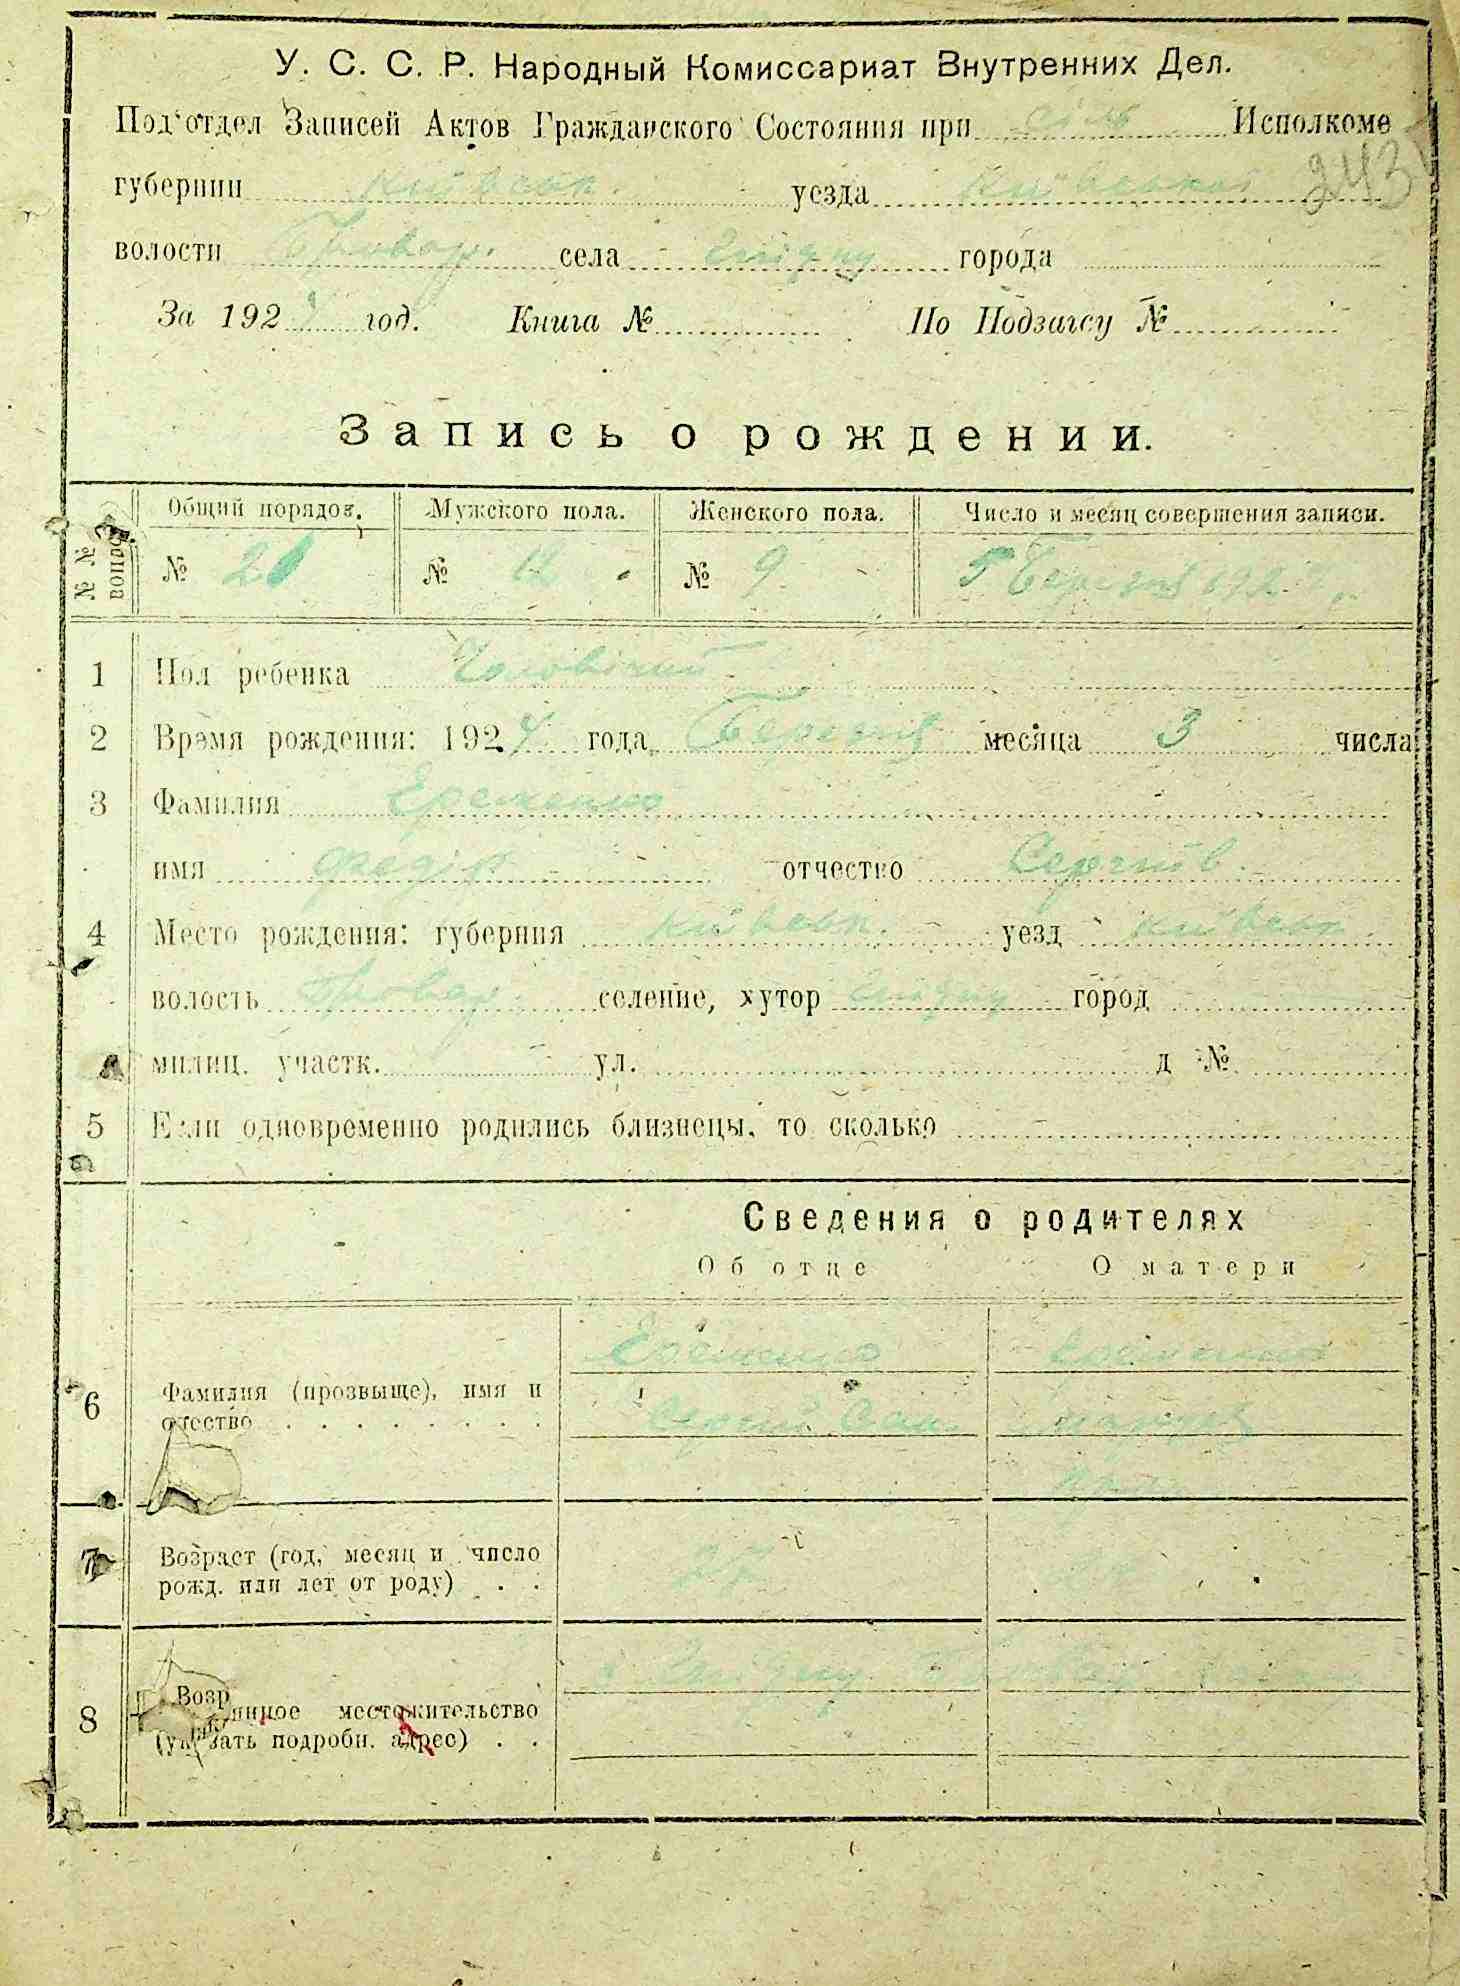 У. С. С. Р. Народный Комиссариат Внутренних Дел.
Под'отдел Записей Актов Гражданского Состояния при Исполкоме
губернии Київськ. уезда Київської 243
волости Бровар. села города
За 1924 год. Книга № По Подзагсу №
Запись о рождении.
№ № вопос
Общий порядок. Мужского пола. Женского пола. Число и месяц совершения записи.
№ 21 № 12 № 9 5 Березня 192
1 Пол ребенка Чоловічий
2 Время рождения: 1924 года Березня месяца 3 числа
3 Фамилия Еременко
имя Федір отчество Сергіїв
4 Место рождения: губерния Київськ. уезд Київськ.
волость Бровар. селение, хутор город
милиц. участк. ул. д №
5 Если одновременно родились близнецы, то сколько
Сведения о родителях
Об отце О матери
6 Фамилия (прозвыще), имя и отество
Еременко Еременко
Сергій
7 Возраст (год, месяц и число рожд. или лет от роду)
27
8 янное местожительство
(указать подробн. адрес)
Возр